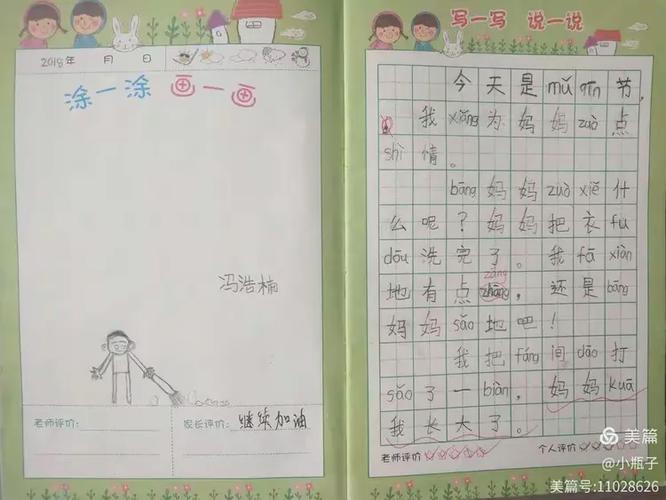 2018年 月 日
涂一涂 画一画
冯浩楠
老师评价:
家长评价: 继续加油
写一写 说一说
今天是mǔ qīn节,
我xiǎng为妈妈zuò点
shì情。
bāng妈妈zuò xiē什
么呢？妈妈把衣fu
dōu洗完了。我fā xiàn
地有点zāng，还是bāng
妈妈sǎo地吧！
我把fáng间dāo打
sǎo了一biàn，妈妈kuā
我长大了。
老师评价
个人评价
美篇
@小瓶子
美篇号:11028626